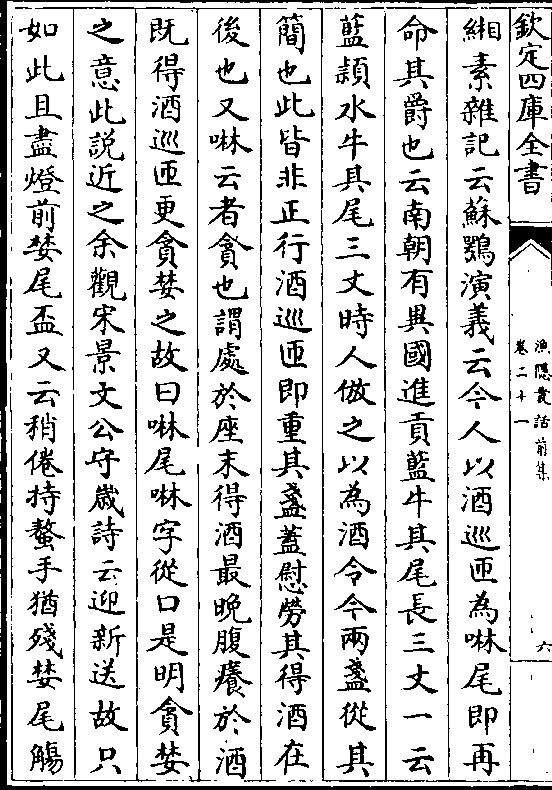 欽定四庫全書
漁隱叢話前集
卷二十一
六
緗素雜記云蘇鶚演義云今人以酒巡匝為啉尾即再
命其爵也云南朝有異國進貢藍牛其尾長三丈一云
藍頴水牛其尾三丈時人倣之以為酒令今兩盞從其
簡也此皆非正行酒巡匝即重其盞蓋慰勞其得酒在
後也又啉云者貪也謂處於座末得酒最晚腹癢於酒
既得酒巡匝更貪婪之故曰啉尾啉字從口是明貪婪
之意此説近之余觀宋景文公守嵗詩云迎新送故只
如此且盡燈前婪尾盃又云稍倦持螯手猶殘婪尾觴